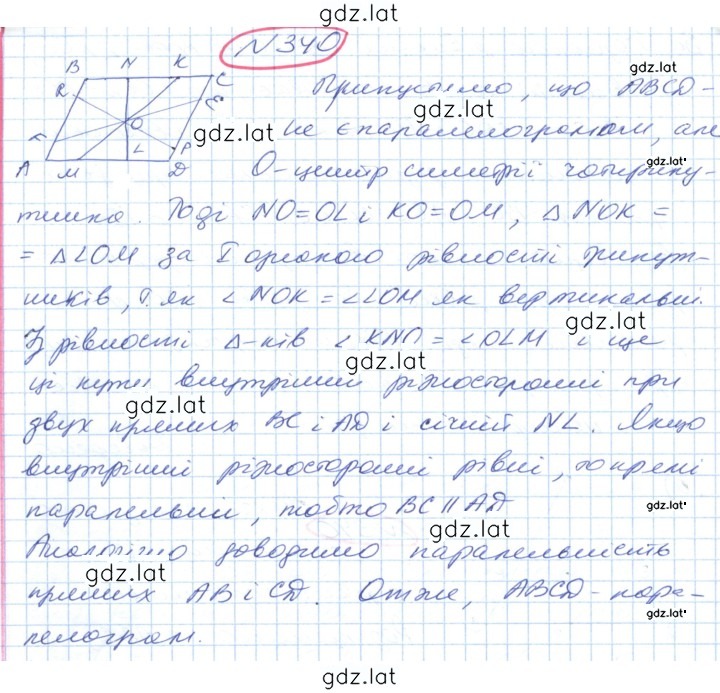 gdz.lat
N340
B N K C
gdz.lat
R E
Припустимо, що ABCD -
gdz.lat
O
gdz.lat
не є паралелограмом, але
L P
A M D
O - центр симетрії чотирику-
gdz.lat
тника. Тоді NO=OL і KO=OM, △ NOK =
gdz.lat
= △LOM за I ознакою рівності трикут-
ників, т.як ∠NOK = ∠LOM як вертикальні.
gdz.lat
З рівності △-ків ∠KNO = ∠OLM і ще
gdz.lat
ці кути внутрішні різносторонні при
gdz.lat
двух прямих BC і AD і січній NL. Якщо
внутрішні різносторонні рівні, то прямі
паралельни, тобто BC || AD
gdz.lat
gdz.lat
Аналогічно доводимо паралельність
gdz.lat
прямих AB і CD. Отже, ABCD - пара-
gdz.lat
лелограм.
gdz.lat